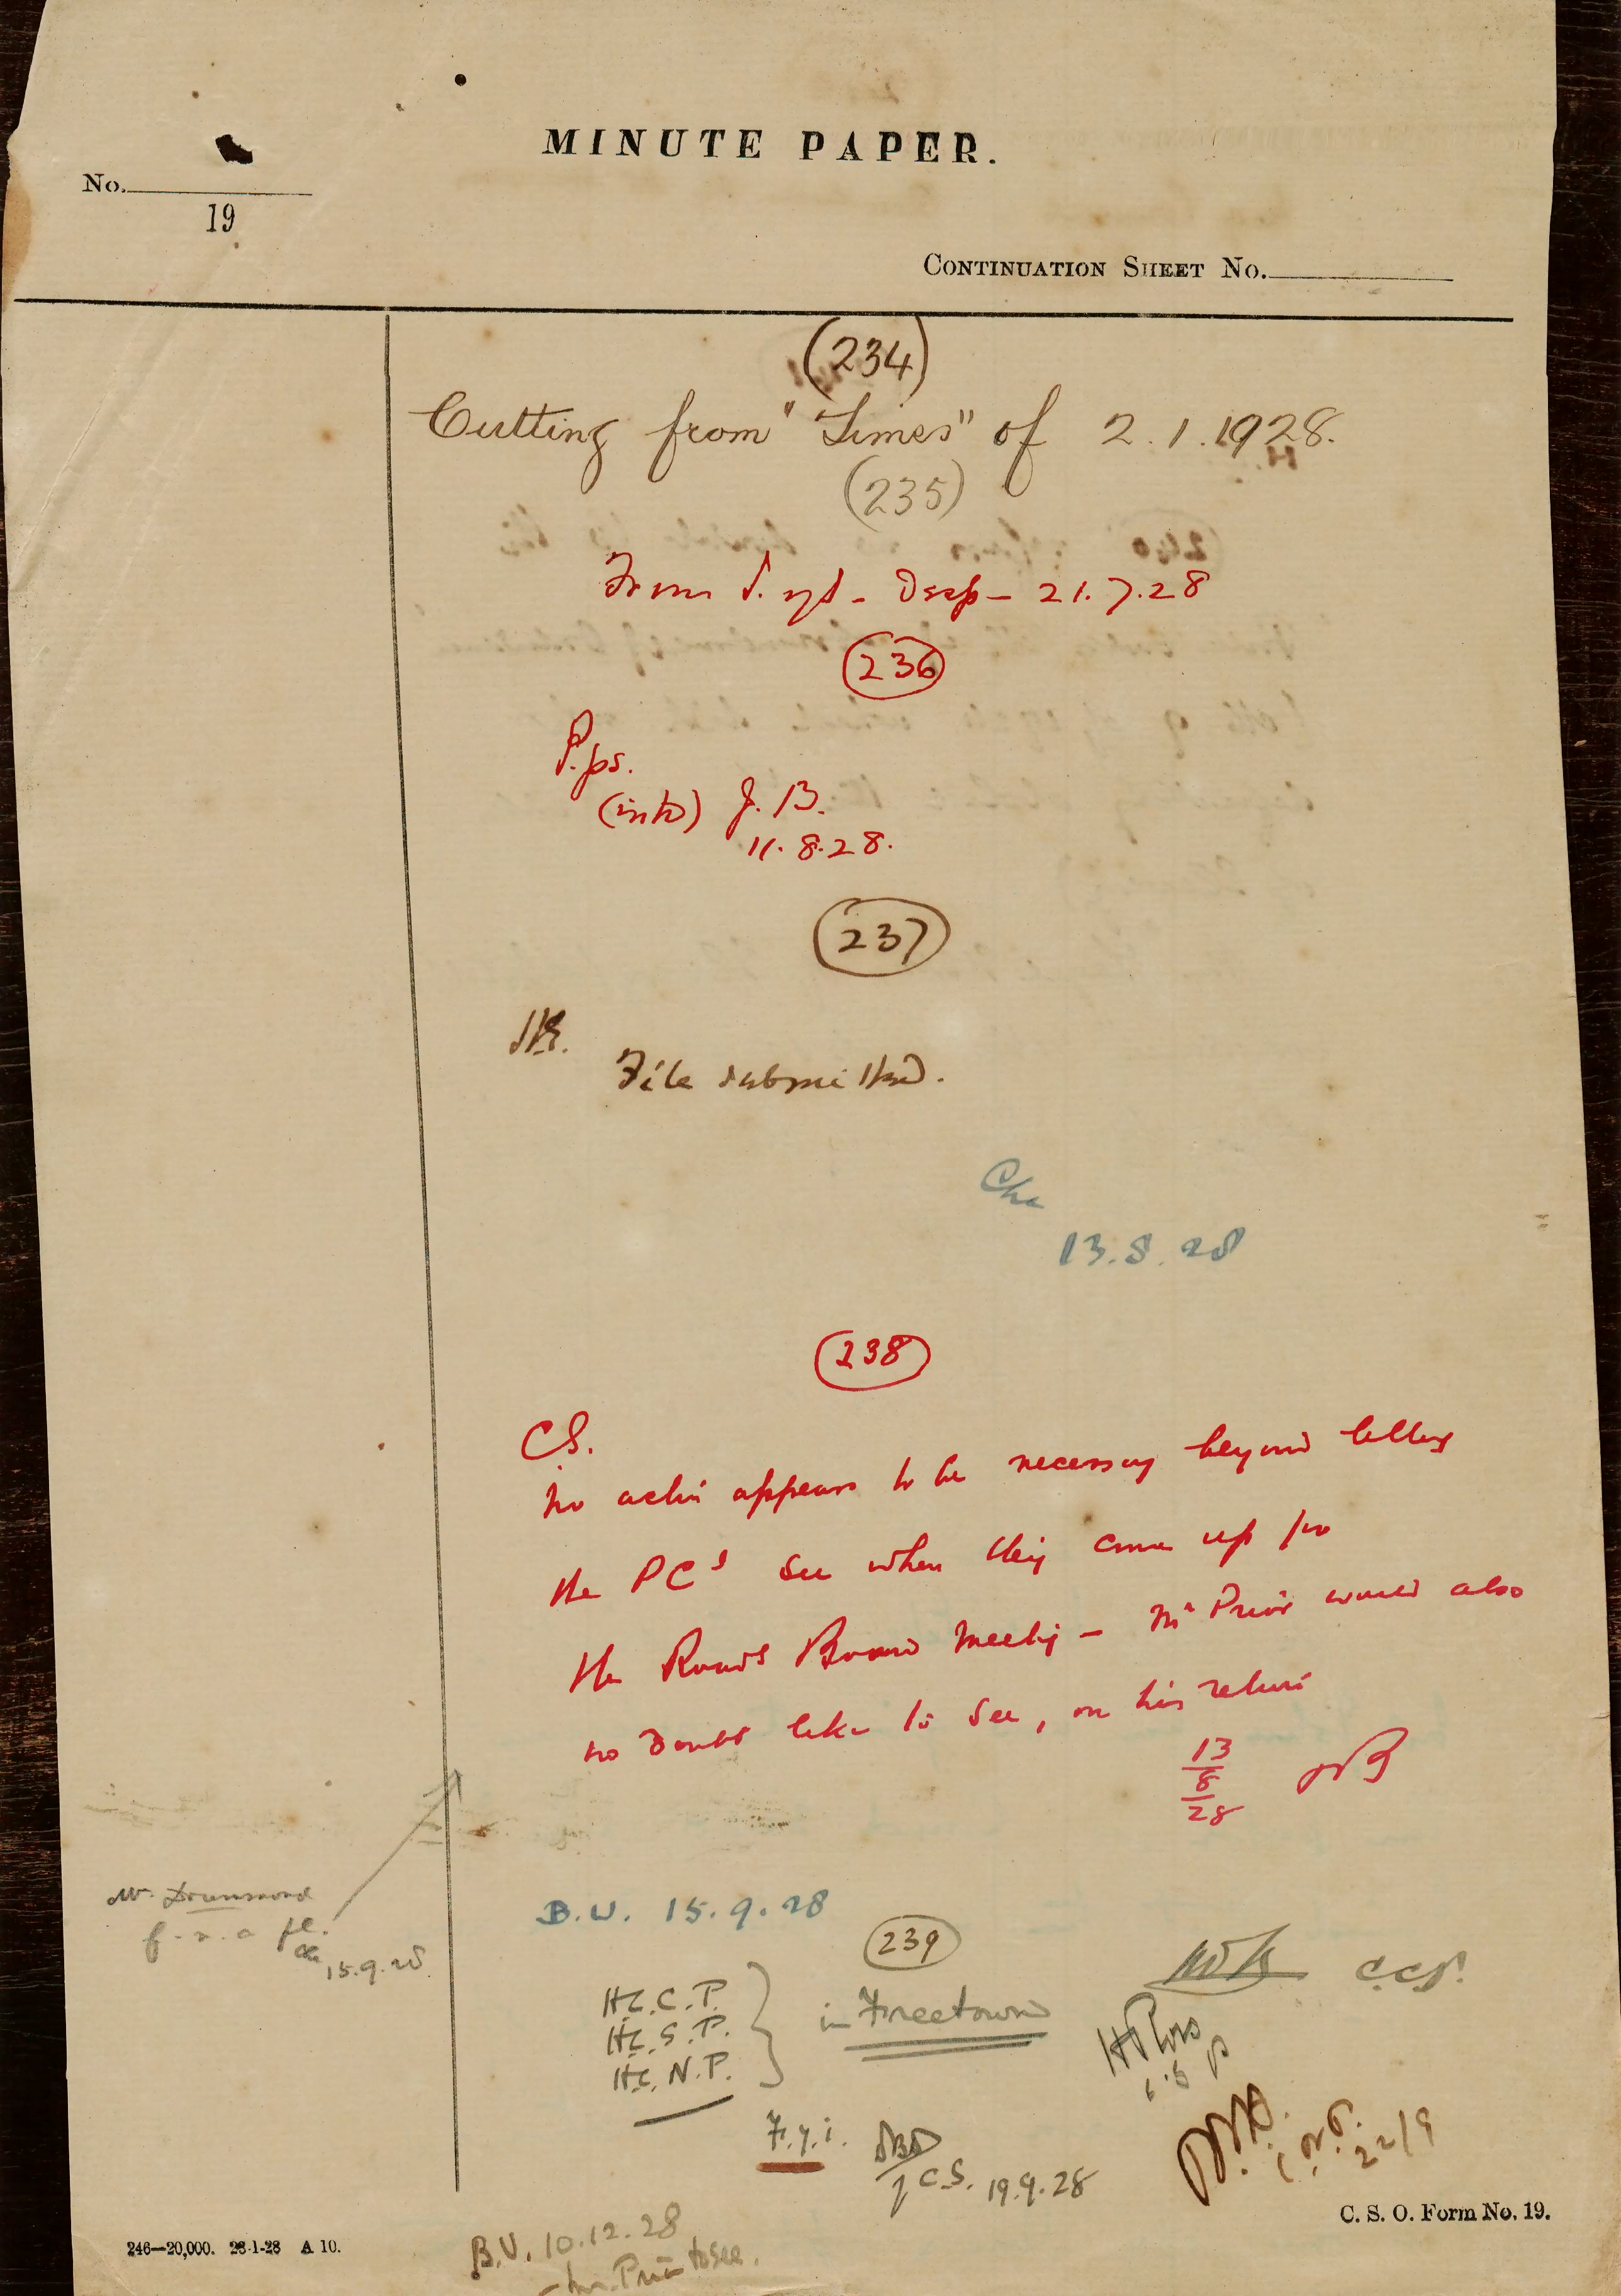 MINUTE PAPER.
No.
19
CONTINUATION SHEET No.
(234)
Cutting from "Times" of 2.1.1928.
(235)
From Desp- 21.7.28
236
P.ps.
J.B.
11.8.28.
237
File submitted.
13.8.28
238
C.S.
No action appears to be necessary beyond letting
the PCs see when they come up for
the Roads Board Meeting - Mr Prior would also
no doubt like to see, on his return
13
8
28
Mr. Drummond
15.9.28
B.U. 15.9.28
239
H.C.C.P.
H.C.S.P. in Freetown
H.C.N.P.
C.C.P.
F.y.i.
C.S. 19.9.28
22/9
C. S. O. Form No. 19.
246—20,000. 28-1-28 A 10.
B.U. 10.12.28
- Mr. Prior to see.